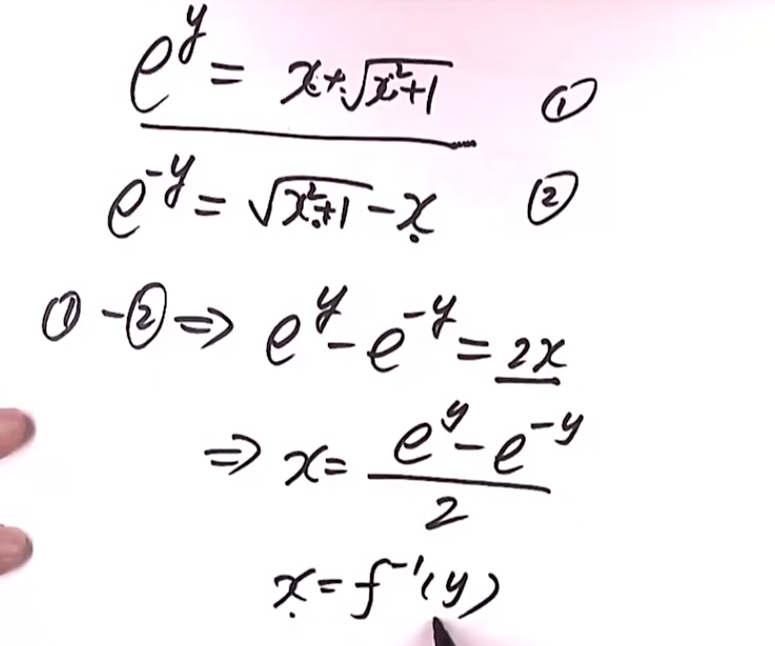 e^y = x+√(x²+1) ①
e^-y = √(x²+1) - x ②
① - ② ⇒ e^y - e^-y = 2x
⇒ x = (e^y - e^-y)/2
x = f⁻¹(y)